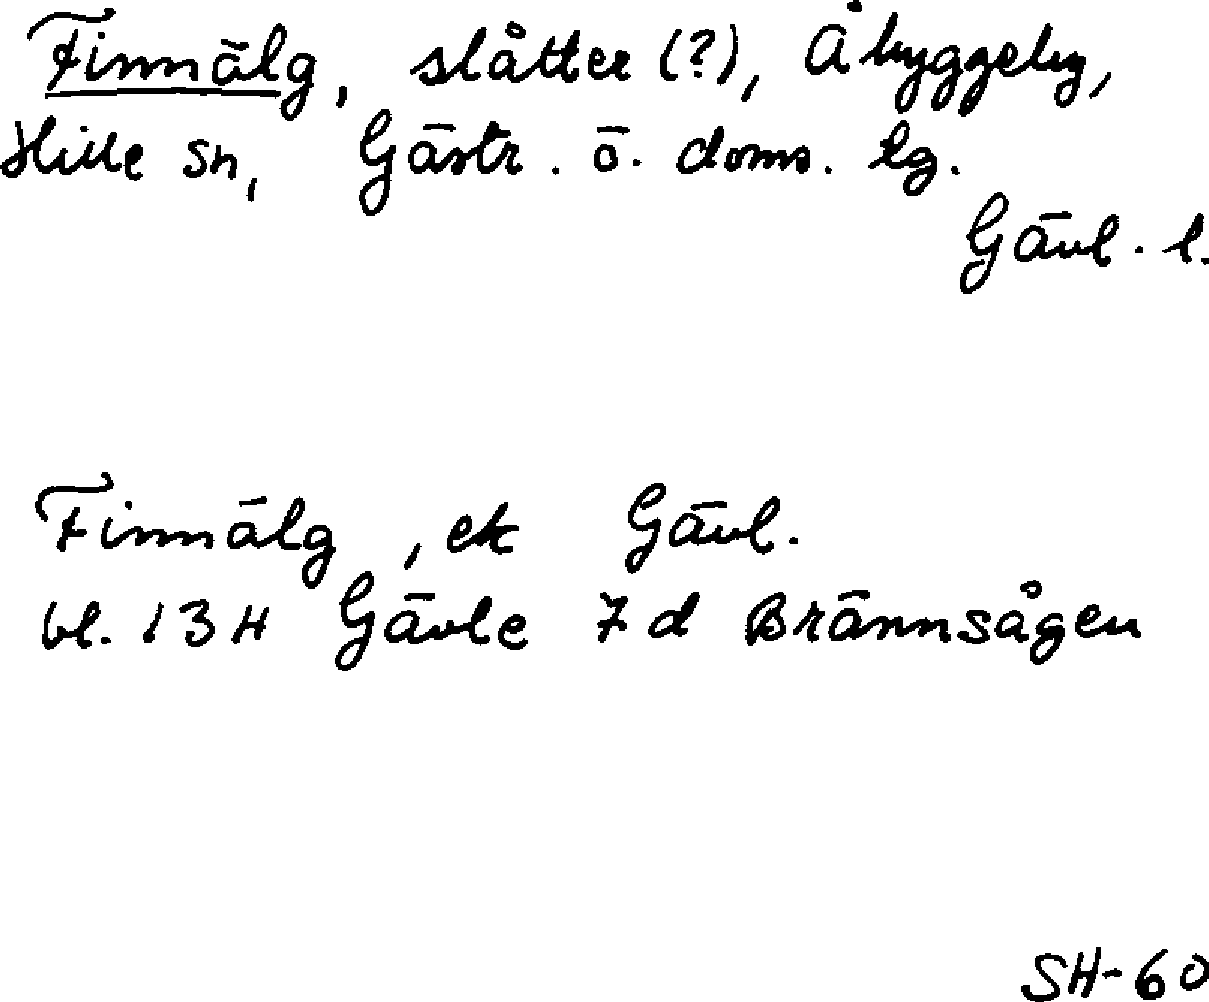 Finnälg, slåtter (?), Åbyggeby,
Hille sn, Gästr. ö. doms. lg.
Gävl. l.
Finnälg, ek Gävl.
bl. 13H Gävle 7d Brännsågen
SH-60